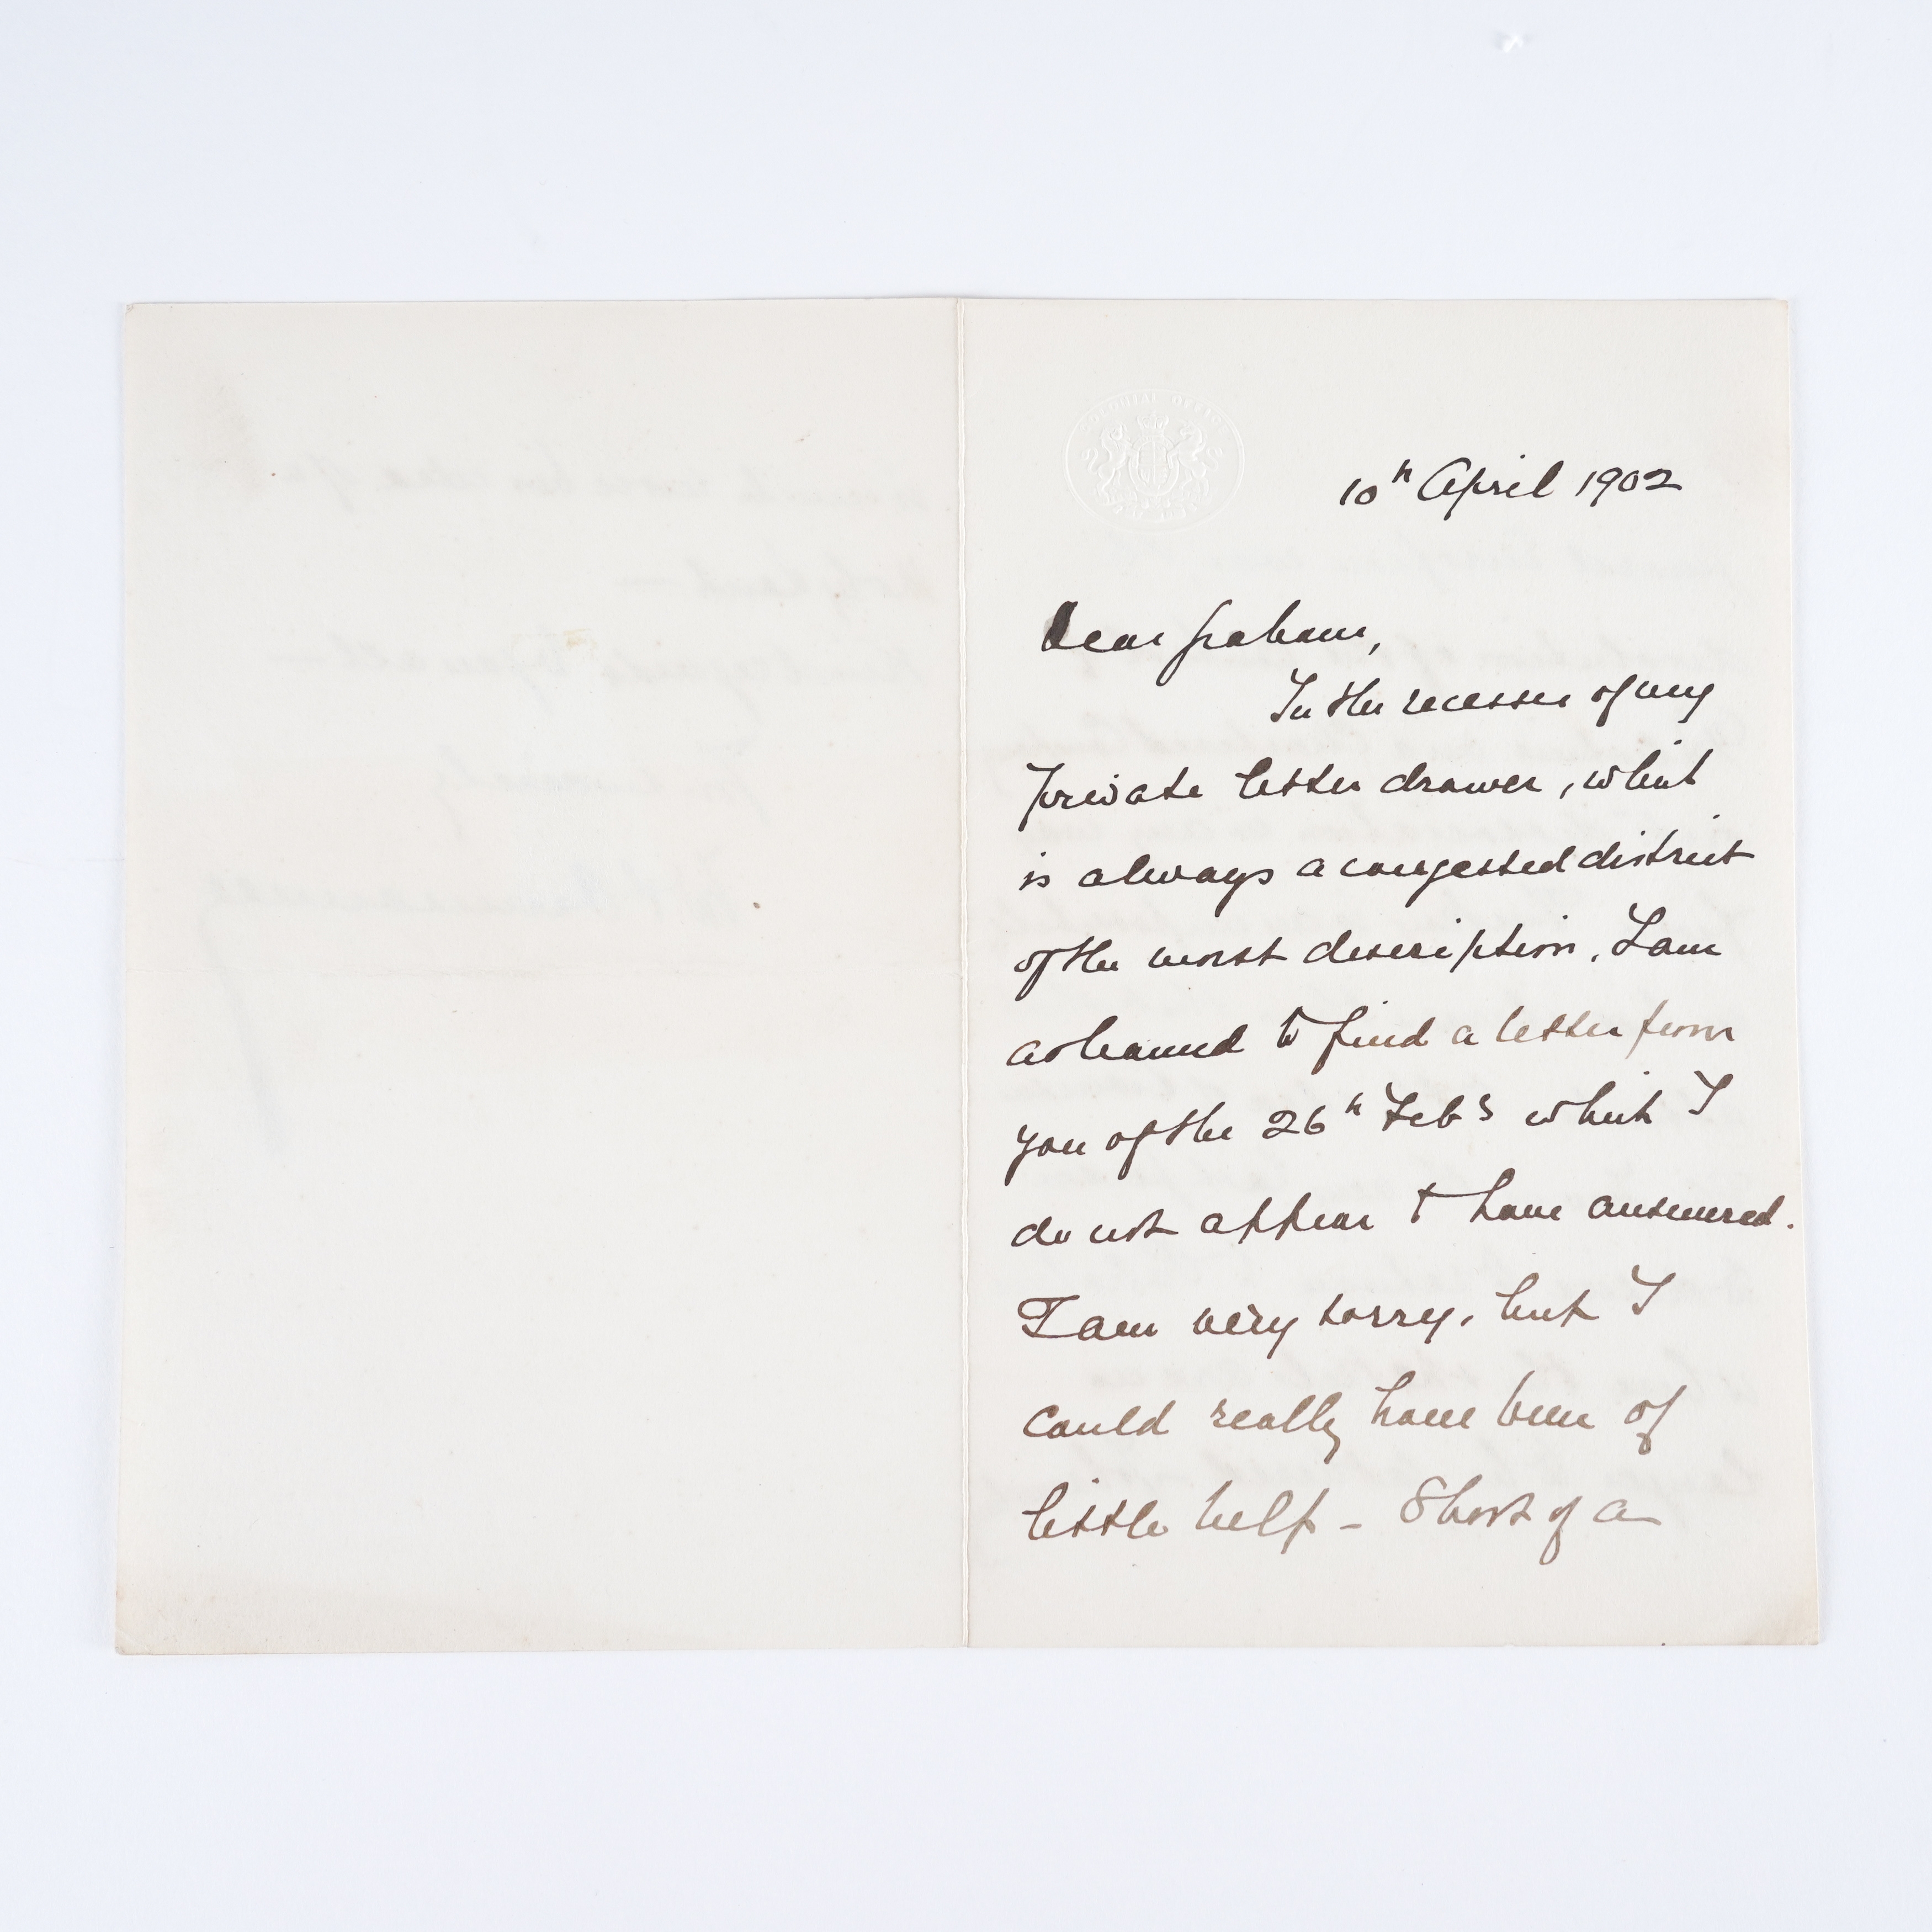 COLONIAL OFFICE
10th April 1902
Dear Graham,
In the recesses of my
private letter drawer, which
is always a congested district
of the worst description, I am
ashamed to find a letter from
you of the 26th Feby which I
do not appear to have answered.
I am very sorry, but I
could really have been of
little help - Short of a